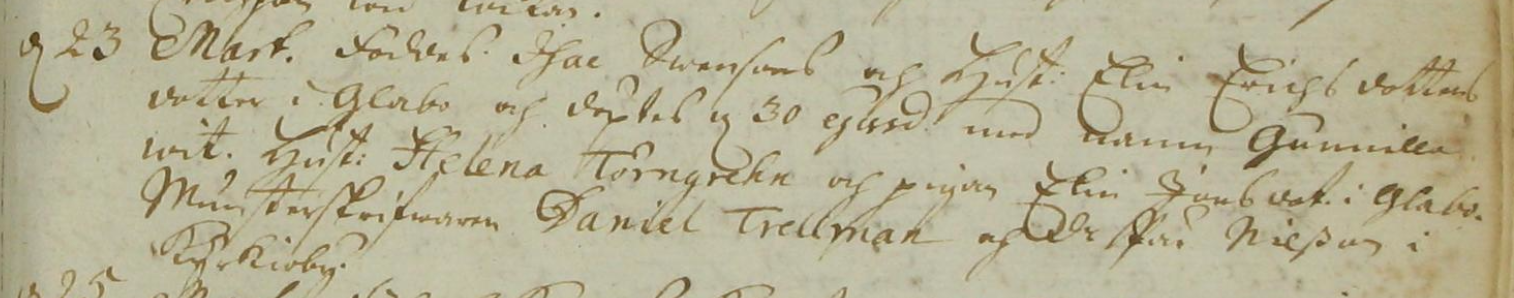 d 23 Mart. föddes Isac Swensons och Hust: Elin Erichsdotters
dotter i Glabo och döptes d 30 ejusd med namn Gunnilla
wit. Hust: Helena Törngrehn och pigan Elin Jonsdot. i Glabo.
Munsterskrifwaren Daniel Trellman och Nilsson i
Kyrkioby.
d 25